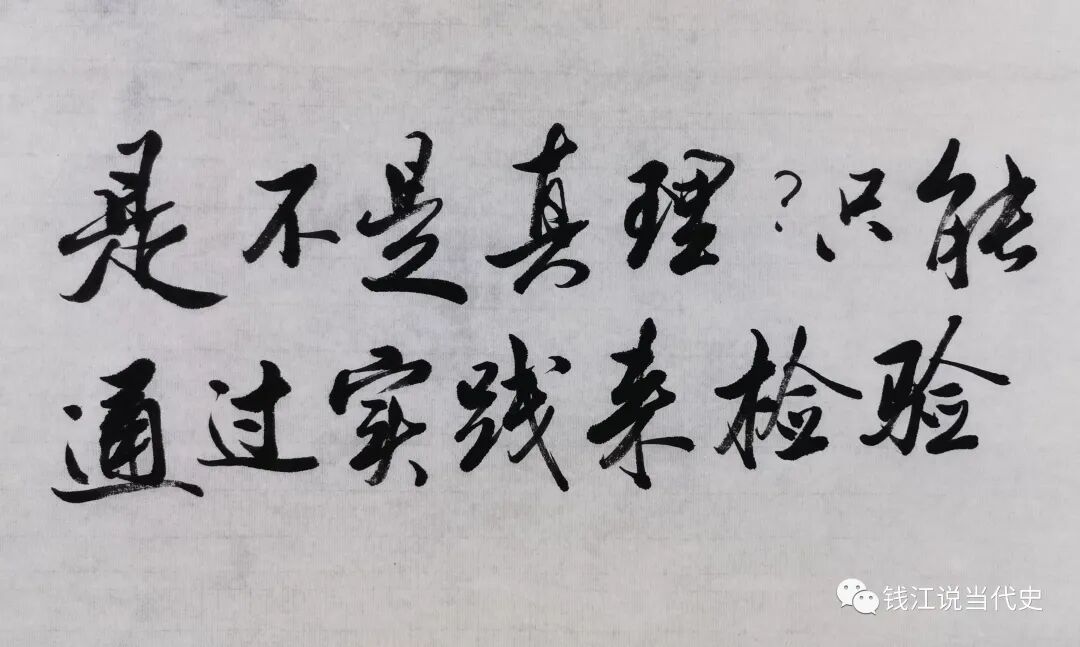 是不是真理?只能
通过实践来检验
钱江说当代史